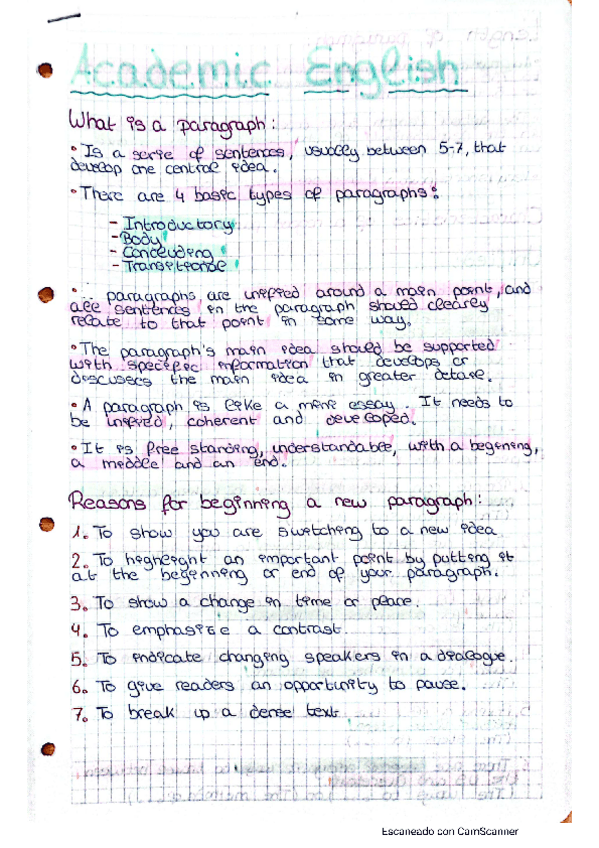 Academic English
What is a paragraph:
• Is a serie of sentences, usually between 5-7, that
develop one central idea.
• There are 4 basic types of paragraphs:
- Introductory
- Body
- Concluding
- Transitional
• paragraphs are unified around a main point, and
all sentences in the paragraph should clearly
relate to that point in some way.
• The paragraph's main idea should be supported
with specific information that develops or
discusses the main idea in greater detail.
• A paragraph is like a mini essay. It needs to
be unified, coherent and developed.
• It is free standing, understandable, with a begening,
a middle and an end.
Reasons for beginning a new paragraph:
1. To show you are switching to a new idea
2. To highlight an important point by putting it
at the beginning or end of your paragraph.
3. To show a change in time or place.
4. To emphasize a contrast.
5. To indicate changing speakers in a dialogue.
6. To give readers an opportunity to pause.
7. To break up a dense text
Escaneado con CamScanner